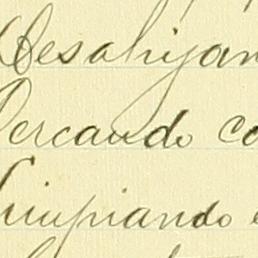 Desahijan
Cercando co
Limpiando